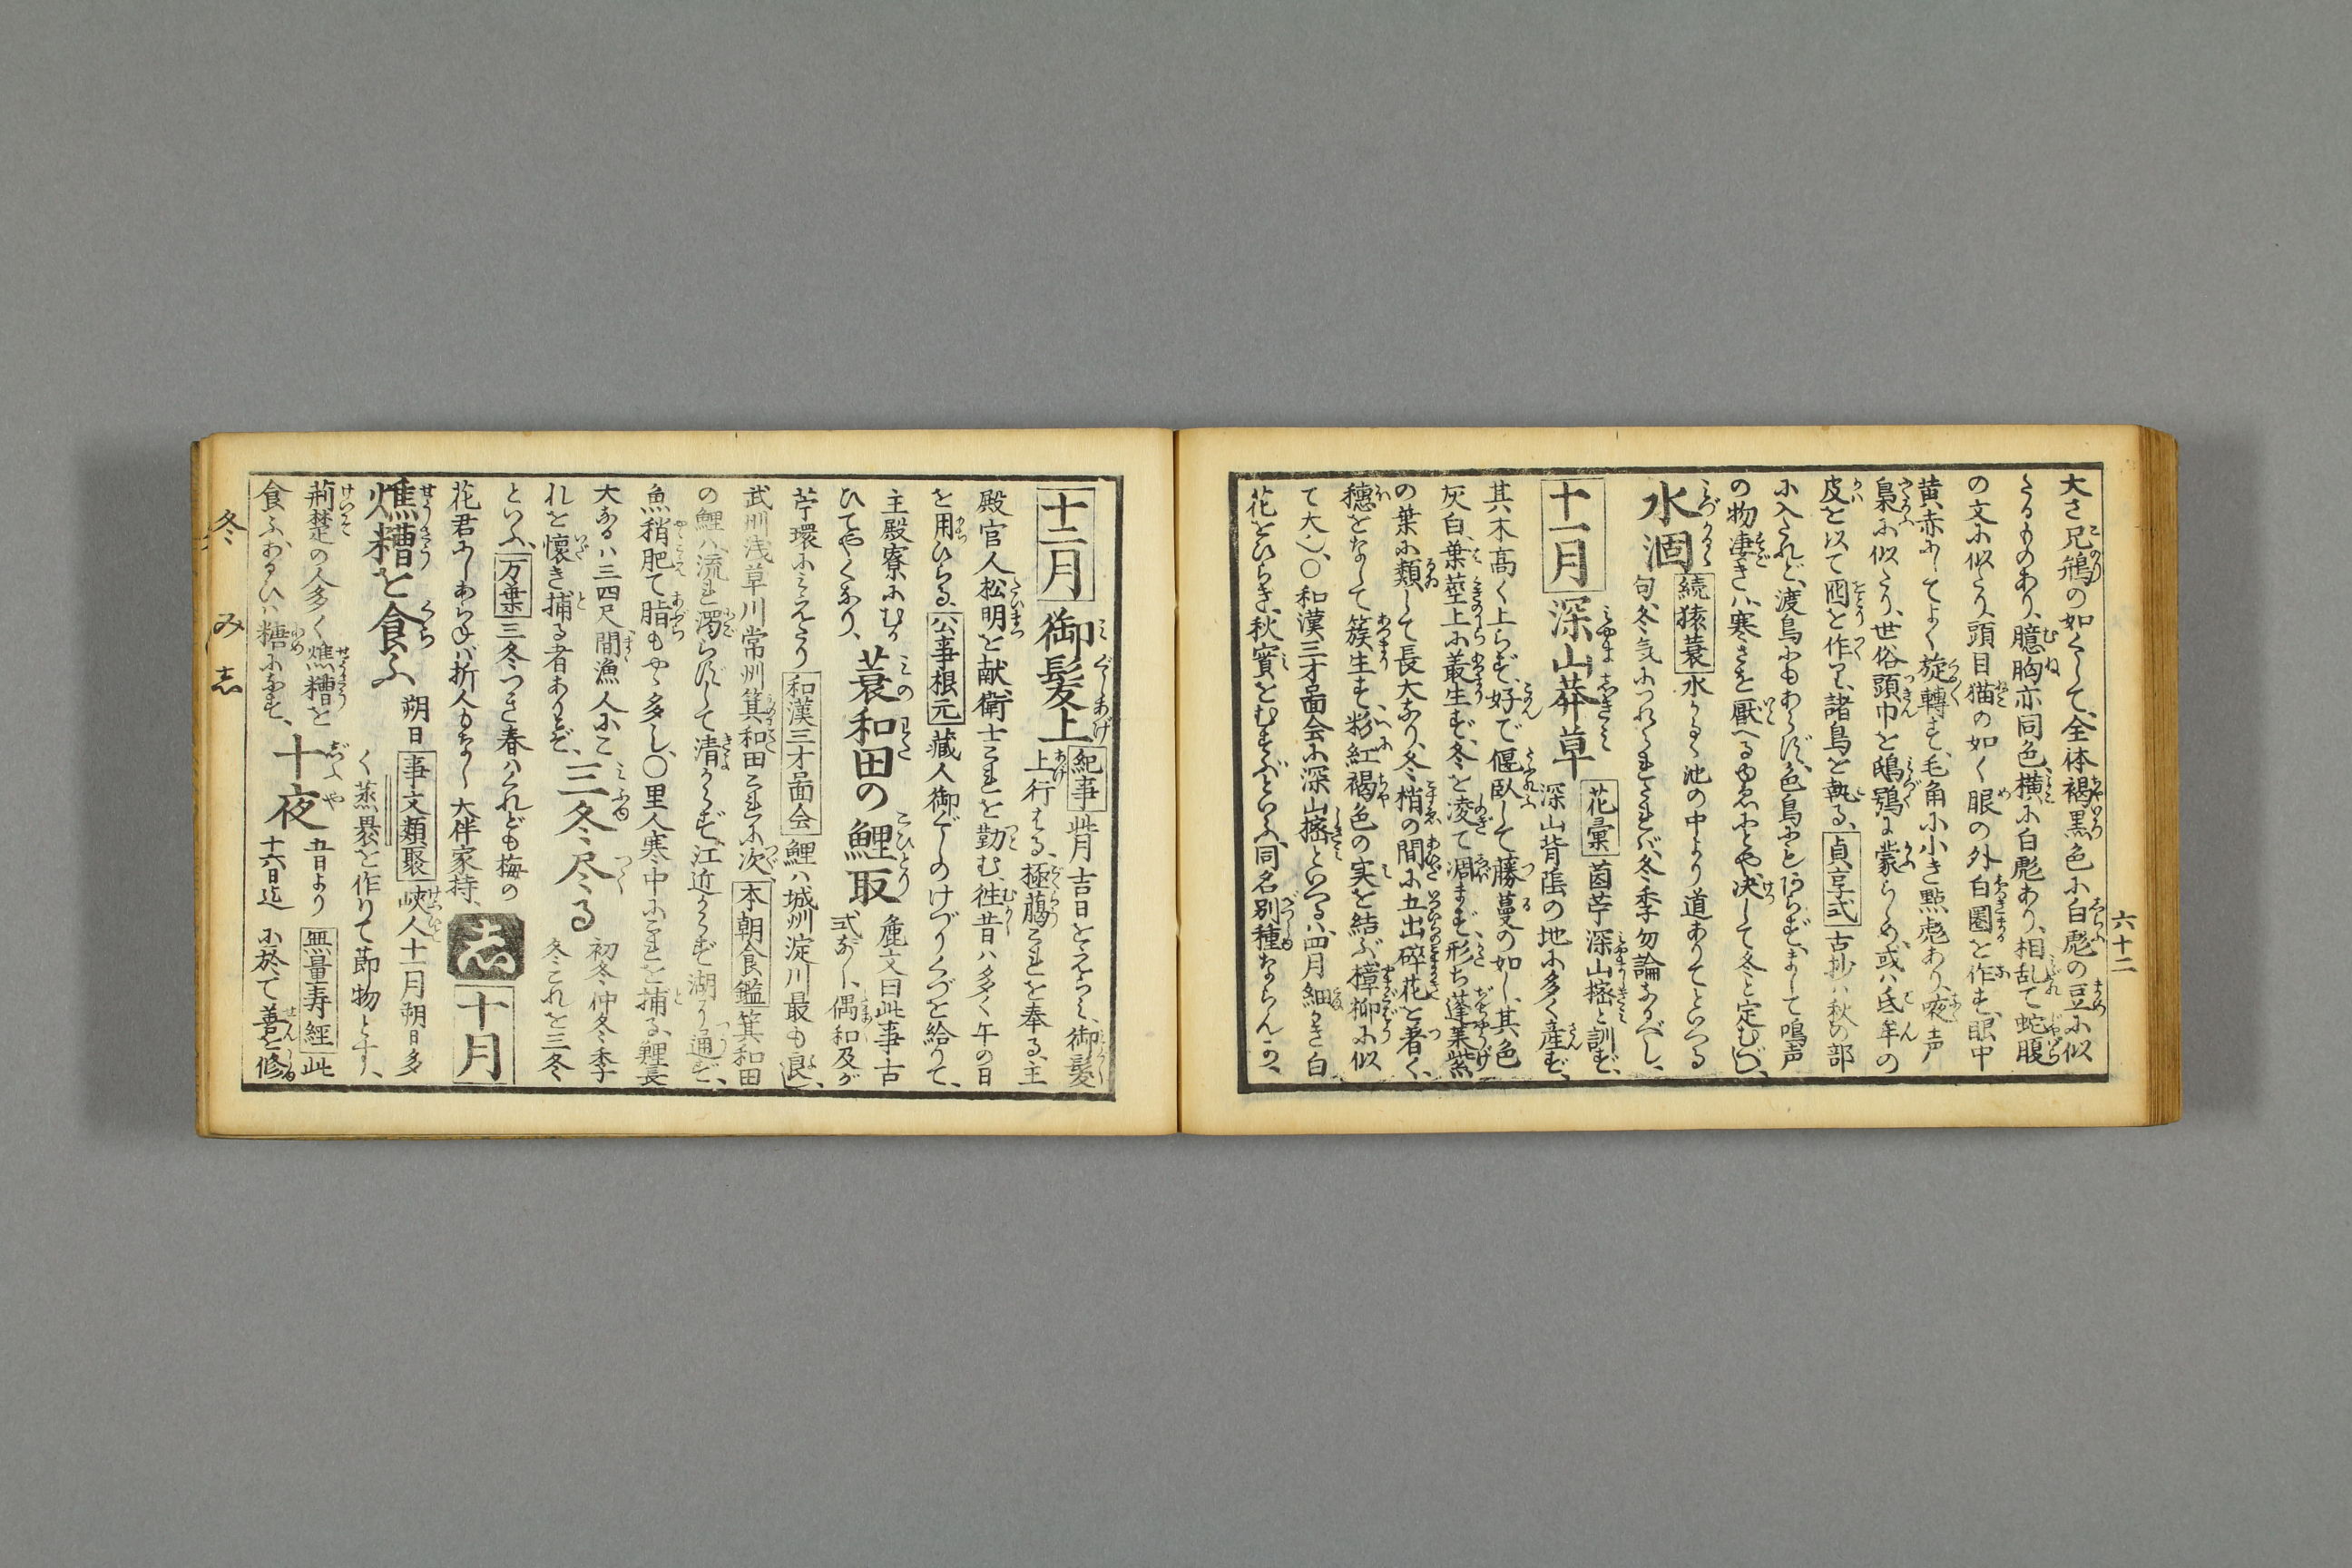 六十二
大さ兄鷂の如くして、全体褐黒色に白彪の豆に似
たるものあり、臆胸亦同色、横に白彪あり、相乱て蛇腹
の文に似たり、頭目猫の如く眼の外白圏を作す、眼中
黄赤にしてよく旋轉す、毛角小小き點彪あり、夜声
梟に似たり、世俗頭巾を鴟鵂に蒙らしめ、或は
皮を以て囮を作り、諸鳥を執る、貞享式古抄ハ秋の部
に入たれど、渡鳥にもあらず、色鳥にもあらず、まして鳴声
の物凄きハ、寒さを厭へるゆゑにや、决して冬と定むべし、
水涸 続猿蓑 水かるゝ池の中より道ありてといへる
句、冬気につれられたれバ、冬季勿論なるべし、
十一月 深山莽草 花彙 茵芋深山樒と訓ず、
深山背陰の地に多く産ず、
其木高く上らず、好で偃臥して藤蔓の如し、其色
灰白、葉莖上に叢生ず、冬を凌て凋まず、形ち蓬莱紫
の葉に類して長大なり、冬梢の間に五出碎花を着く、
穗をなして簇生す、粉紅褐色の実を結ぶ、樟柳に似
て大し、〇和漢三才圖会に深山樒といへるハ、四月細かき白
花をひらき、秋實をむすぶといふ、同名別種ならんか、
十二月 御髪上 紀事 此月吉日をえらミ、御髪
上行はる、極﨟これを奉る、主
殿官人松明を献、衛士これを勤む、徃昔ハ多く午の日
を用ひらる、公事根元 蔵人御ぐしのけづりくづを給りて、
主殿寮にむか
ひてやくなり、蓑和田の鯉取 鹿文曰此事古
式なし、偶和及が
苧環にミえたり 和漢三才圖会 鯉ハ城州淀川最も良し、
武州浅草川常州箕和田これに次、本朝食鑑 箕和田
の鯉ハ流れ濁らずして清からず、江近からず湖より通ず、
魚稍肥て脂もやゝ多し、〇里人寒中にこれを捕る、鯉長
大なるハ三四尺、間漁人にこ
れを懐き捕る者ありとぞ、三冬尽る 初冬仲冬季
冬これを三冬
といふ、万葉 三冬つき春ハくれども梅の
花君にしあらねバ折人もなし 大伴家持、志 十月
燋糟を食ふ 朔日 事文類聚 峽人十一月朔日多
く蒸裹を作りて節物とす、
荊楚の人多く燋糟を
食ふ、あるひハ糖になす、十夜 五日より
十六日迄 無量寿經 此
に於て善を修
冬 み 志